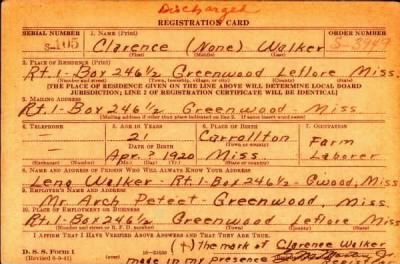 Discharged
REGISTRATION CARD
SERIAL NUMBER 1. NAME (Print) ORDER NUMBER
S-105 Clarence (None) Walker S-3949
(First) (Middle) (Last)
2. PLACE OF RESIDENCE (Print)
Rt. 1-Box 246 1/2 Greenwood Leflore Miss.
(Number and street) (Town, township, village, or city) (County) (State)
[THE PLACE OF RESIDENCE GIVEN ON THE LINE ABOVE WILL DETERMINE LOCAL BOARD
JURISDICTION; LINE 2 OF REGISTRATION CERTIFICATE WILL BE IDENTICAL]
3. MAILING ADDRESS
Rt. 1-Box 246 1/2 Greenwood - Miss
[Mailing address if other than place indicated on line 2. If same insert word same]
4. TELEPHONE 5. AGE IN YEARS 6. PLACE OF BIRTH 7. OCCUPATION
21 Carrollton Farm
DATE OF BIRTH (Town or county)
Apr. 2 1920 Miss. Laborer
(Exchange) (Number) (Mo.) (Day) (Yr.) (State or country)
8. NAME AND ADDRESS OF PERSON WHO WILL ALWAYS KNOW YOUR ADDRESS
Lena Walker - Rt. 1-Box 246 1/2 - G'wood, Miss.
9. EMPLOYER'S NAME AND ADDRESS
Mr. Arch Peteet - Greenwood, Miss.
10. PLACE OF EMPLOYMENT OR BUSINESS
Rt. 1-Box 246 1/2 Greenwood Leflore Miss
(Number and street or R. F. D. number) (Town) (County) (State)
I AFFIRM THAT I HAVE VERIFIED ABOVE ANSWERS AND THAT THEY ARE TRUE.
D. S. S. Form 1 (+) The mark of Clarence Walker
(Revised 6-9-41) made in my presence